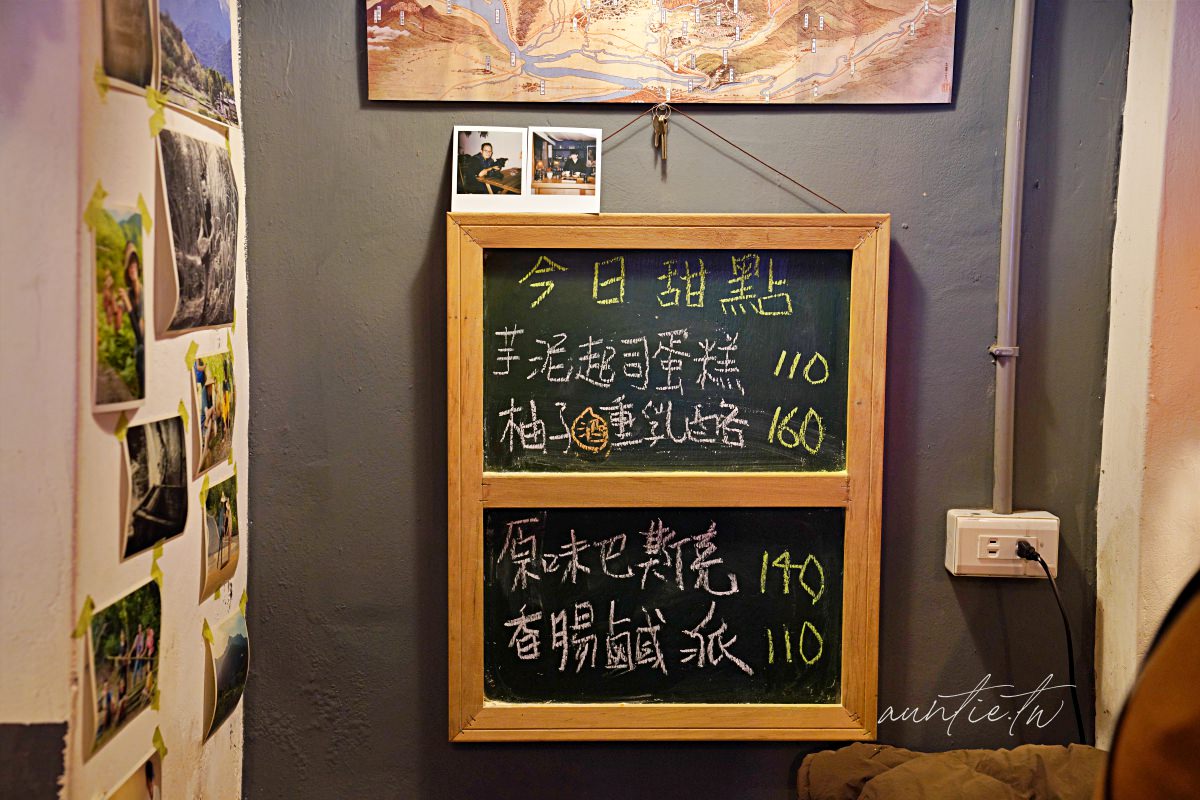 今日甜點
芋泥起司蛋糕 110
柚子酒重乳酪 160
原味巴斯克 140
香腸鹹派 110
auntie.tw